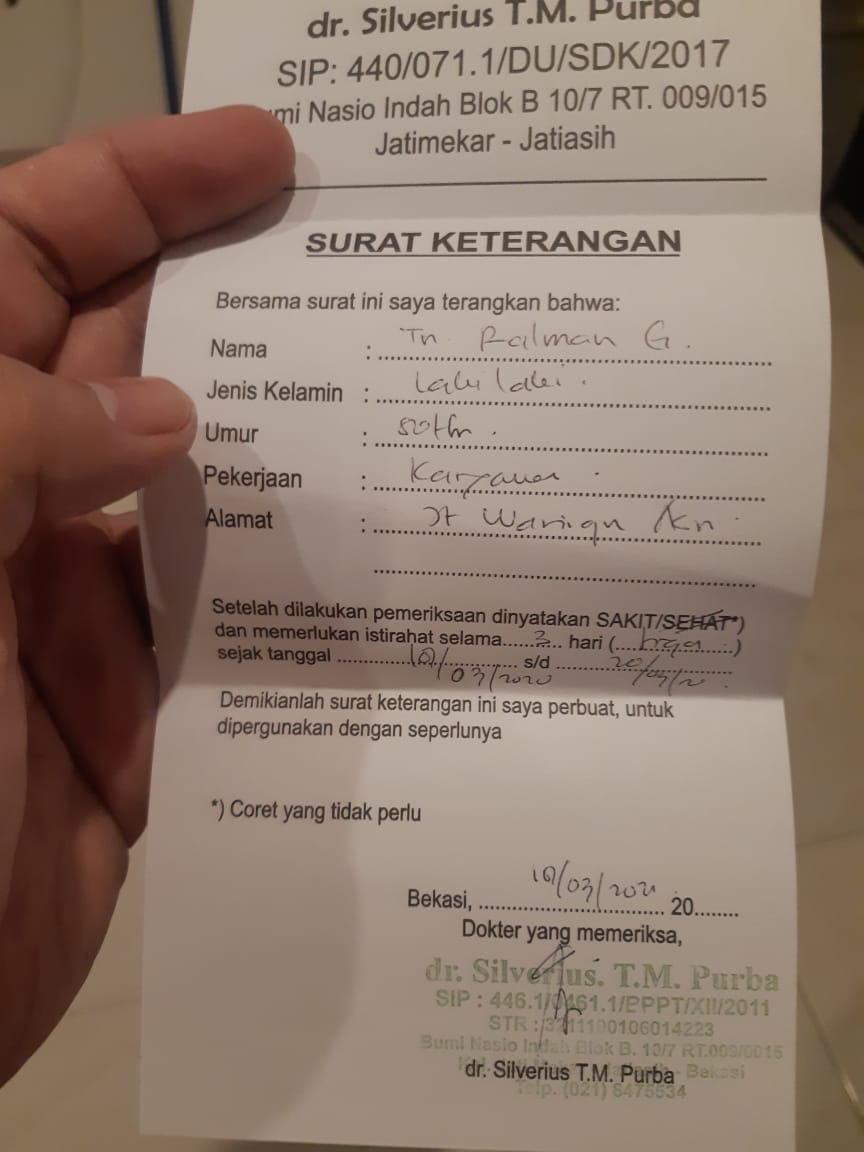 dr. Silverius T.M. Purba
SIP: 440/071.1/DU/SDK/2017
mi Nasio Indah Blok B 10/7 RT. 009/015
Jatimekar - Jatiasih
SURAT KETERANGAN
Bersama surat ini saya terangkan bahwa:
Nama : Tn. Ralman G.
Jenis Kelamin : Laki laki.
Umur : 50 thn.
Pekerjaan : Karyawan
Alamat :
Setelah dilakukan pemeriksaan dinyatakan SAKIT/SEHAT*)
dan memerlukan istirahat selama 3 hari (tiga)
sejak tanggal /03/2020 s/d 20/03/20
Demikianlah surat keterangan ini saya perbuat, untuk
dipergunakan dengan seperlunya
*) Coret yang tidak perlu
Bekasi, /03/202 20
Dokter yang memeriksa,
dr. Silverius. T.M. Purba
SIP : 446.1/0461.1/PPPT/XII/2011
STR : 3211100106014223
Bumi Nasio Indah Blok B. 10/7 RT.009/0015
Bekasi
dr. Silverius T.M. Purba
Telp. (021) 8475534